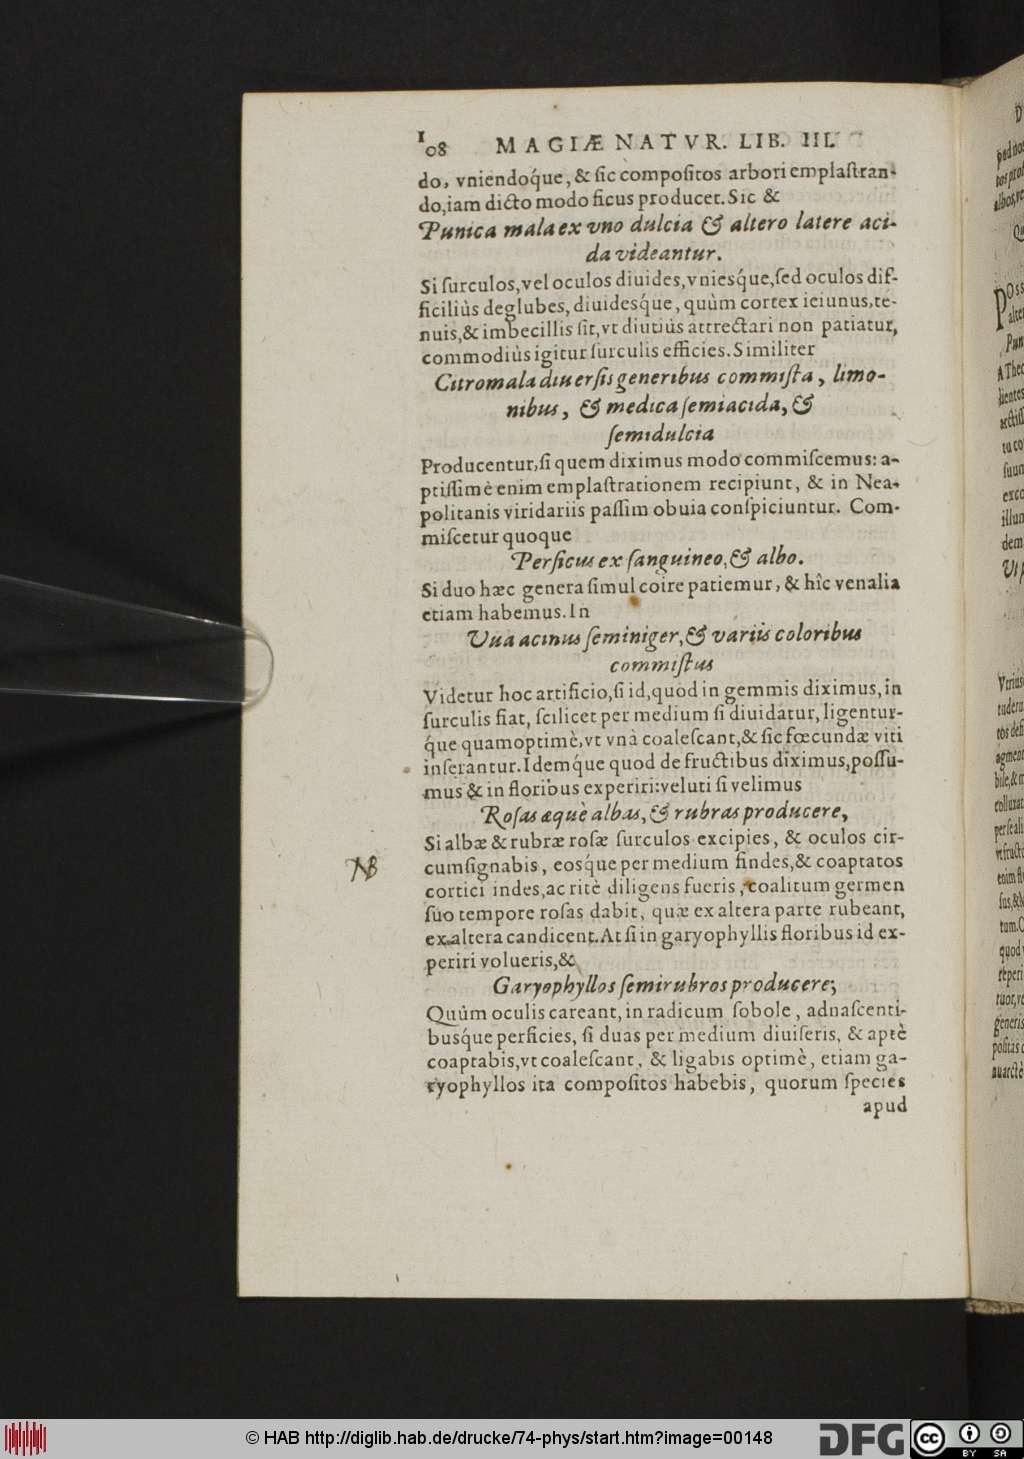 108 MAGIÆ NATVR. LIB. III.
do, vniendoq́ue, & ſic compoſitos arbori emplaſtran-
do, iam dicto modo ficus producet. Sic &
Punica mala ex vno dulcia & altero latere aci-
da videantur.
Si ſurculos, vel oculos diuides, vniesq́ue, ſed oculos dif-
ficiliùs deglubes, diuidesq́ue, quùm cortex ieiunus, te-
nuis, & imbecillis ſit, vt diutiùs attrectari non patiatur,
commodiùs igitur ſurculis efficies. Similiter
Citromala diuerſis generibus commiſta, limo-
nibus, & medica ſemiacida, &
ſemidulcia
Producentur, ſi quem diximus modo commiſcemus: a-
ptiſſimè enim emplaſtrationem recipiunt, & in Nea-
politanis viridariis paſſim obuia conſpiciuntur. Com-
miſcetur quoque
Perſicus ex ſanguineo, & albo.
Si duo hæc genera ſimul coire patiemur, & hîc venalia
etiam habemus. In
Uua acinus ſeminiger, & variis coloribus
commiſtus
Videtur hoc artificio, ſi id, quod in gemmis diximus, in
ſurculis fiat, ſcilicet per medium ſi diuidatur, ligentur-
q́ue quamoptimè, vt vnà coaleſcant, & ſic fœcundæ viti
inſerantur. Idemq́ue quod de fructibus diximus, poſſu-
mus & in floribus experiri: veluti ſi velimus
Roſas æquè albas, & rubras producere,
Si albæ & rubræ roſæ ſurculos excipies, & oculos cir-
NB
cumſignabis, eosq́ue per medium findes, & coaptatos
cortici indes, ac ritè diligens fueris, coalitum germen
ſuo tempore roſas dabit, quæ ex altera parte rubeant,
ex altera candicent. At ſi in garyophyllis floribus id ex-
periri volueris, &
Garyophyllos ſemirubros producere;
Quùm oculis careant, in radicum ſobole, adnaſcenti-
busq́ue perficies, ſi duas per medium diuiſeris, & aptè
coaptabis, vt coaleſcant, & ligabis optimè, etiam ga-
ryophyllos ita compoſitos habebis, quorum ſpecies
apud
© HAB http://diglib.hab.de/drucke/74-phys/start.htm?image=00148
DFG
cc
BY SA